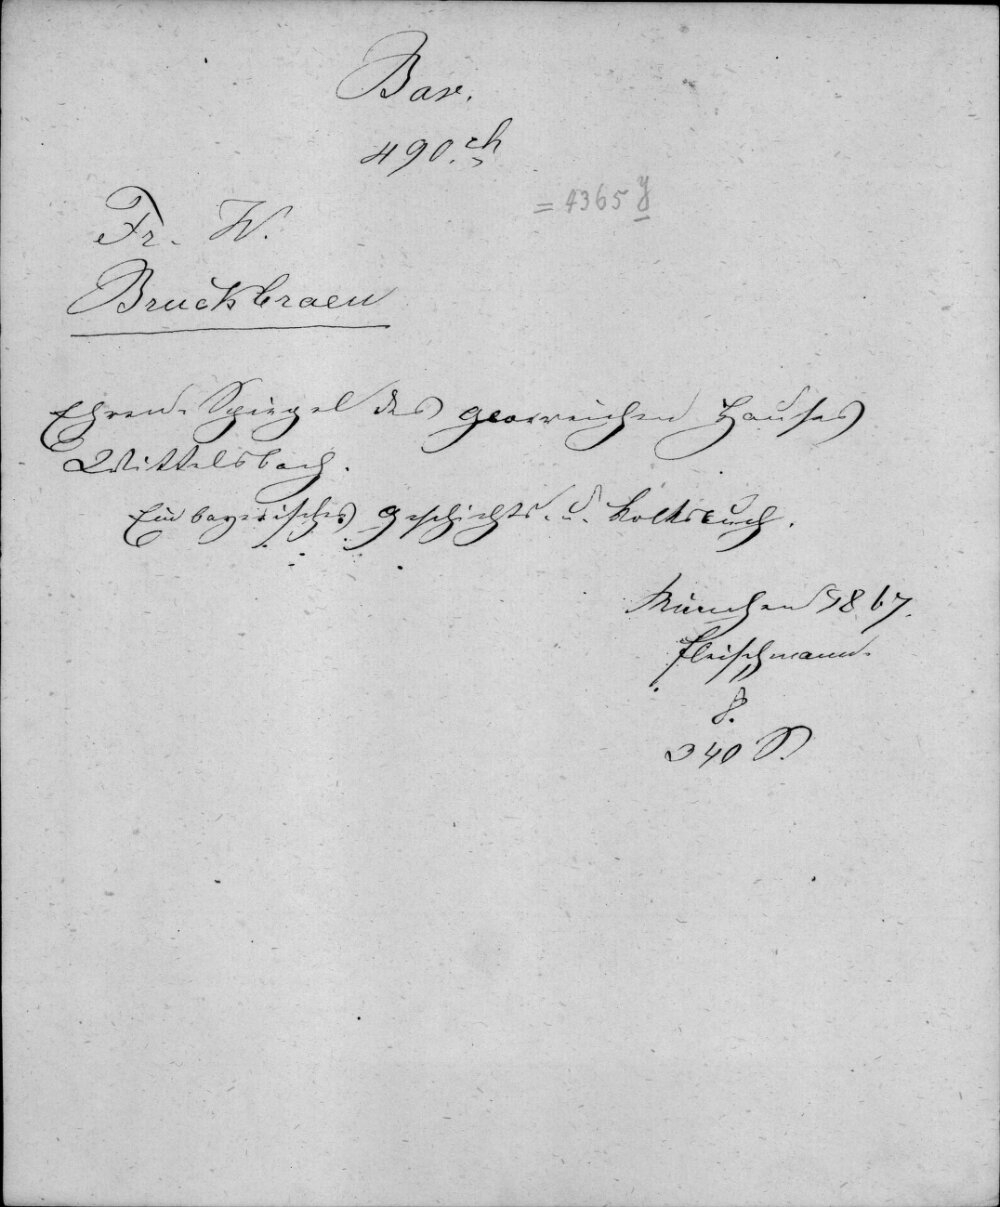 Bav.
490. ch
= 4365 y
Fr. W.
Bruckbraeu
Ehren-Spiegel des glorreichen Hauses
Wittelsbach.
Ein bayerisches Geschichts- u. Volksbuch.
München 1867.
Fleischmann.
8.
340 S.